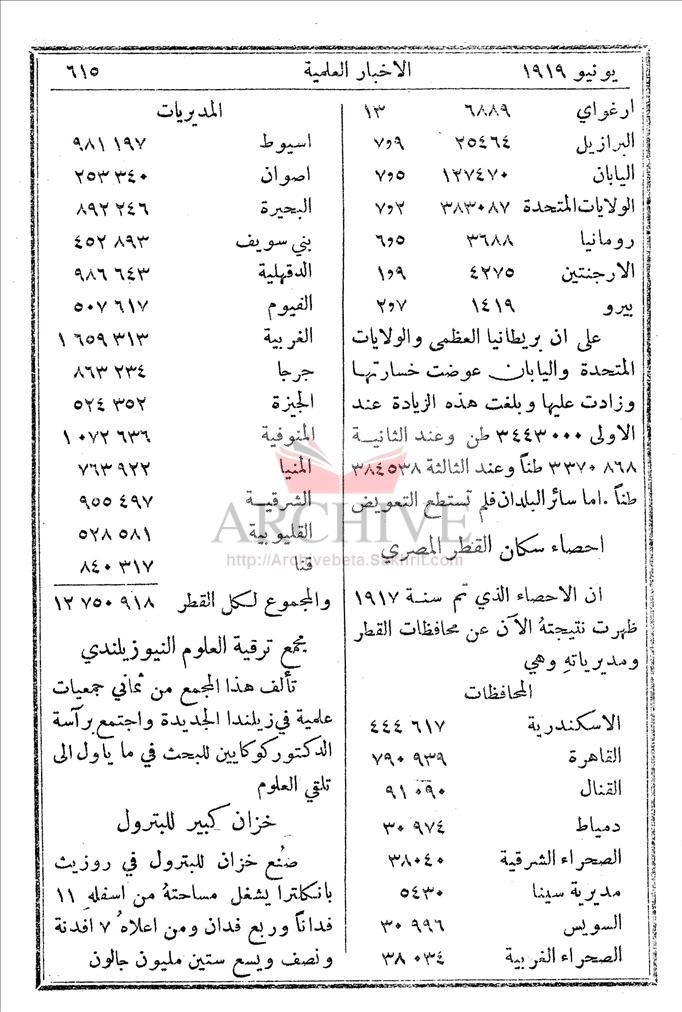 يونيو ١٩١٩ الاخبار العلمية ٦١٥
ارغواي ٦٨٨٩ ١٣
البرازيل ٢٥٤٦٤ ٧٫٩
اليابان ١٢٧٤٧٠ ٧٫٥
الولايات المتحدة ٣٨٣٠٨٧ ٧٫٢
رومانيا ٣٦٨٨ ٦٫٥
الارجنتين ٤٢٧٥ ١٫٩
بيرو ١٤١٩ ٢٫٧
على ان بريطانيا العظمى والولايات
المتحدة واليابان عوضت خسارتها
وزادت عليها وبلغت هذه الزيادة عند
الاولى ٣٤٤٣٠٠٠ طن وعند الثانية
٣٣٧٠٨٦٨ طناً وعند الثالثة ٣٨٤٥٣٨
طناً. اما سائر البلدان فلم تستطع التعويض
احصاء سكان القطر المصري
ان الاحصاء الذي تم سنة ١٩١٧
ظهرت نتيجتهُ الآن عن محافظات القطر
ومديرياتهِ وهي
المحافظات
الاسكندرية ٤٤٤ ٦١٧
القاهرة ٧٩٠ ٩٣٩
القنال ٩١ ٠٩٠
دمياط ٣٠ ٩٧٤
الصحراء الشرقية ٣٨٠٤٠
مديرية سينا ٥٤٣٠
السويس ٣٠ ٩٩٦
الصحراء الغربية ٣٨ ٠٣٤
المديريات
اسيوط ٩٨١ ١٩٧
اصوان ٢٥٣ ٣٤٠
البحيرة ٨٩٢ ٢٤٦
بني سويف ٤٥٢ ٨٩٣
الدقهلية ٩٨٦ ٦٤٣
الفيوم ٥٠٧ ٦١٧
الغربية ١ ٦٥٩ ٣١٣
جرجا ٨٦٣ ٢٣٤
الجيزة ٥٢٤ ٣٥٢
المنوفية ١ ٠٧٢ ٦٣٦
المنيا ٧٦٣ ٩٢٢
الشرقية ٩٥٥ ٤٩٧
القليوبية ٥٢٨ ٥٨١
قنا ٨٤٠ ٣١٧
والمجموع لكل القطر ١٢ ٧٥٠ ٩١٨
مجمع ترقية العلوم النيوزيلندي
تألف هذا المجمع من ثماني جمعيات
علمية في زيلندا الجديدة واجتمع برآسة
الدكتور كوكايين للبحث في ما ياول الى
تلقي العلوم
خزان كبير للبترول
صُنع خزان للبترول في روزيث
بانكلترا يشغل مساحتهُ من اسفلهِ ١١
فداناً وربع فدان ومن اعلاهُ ٧ افدنة
ونصف ويسع ستين مليون جالون
ARCHIVE
http://Archivebeta.Sakhrit.com